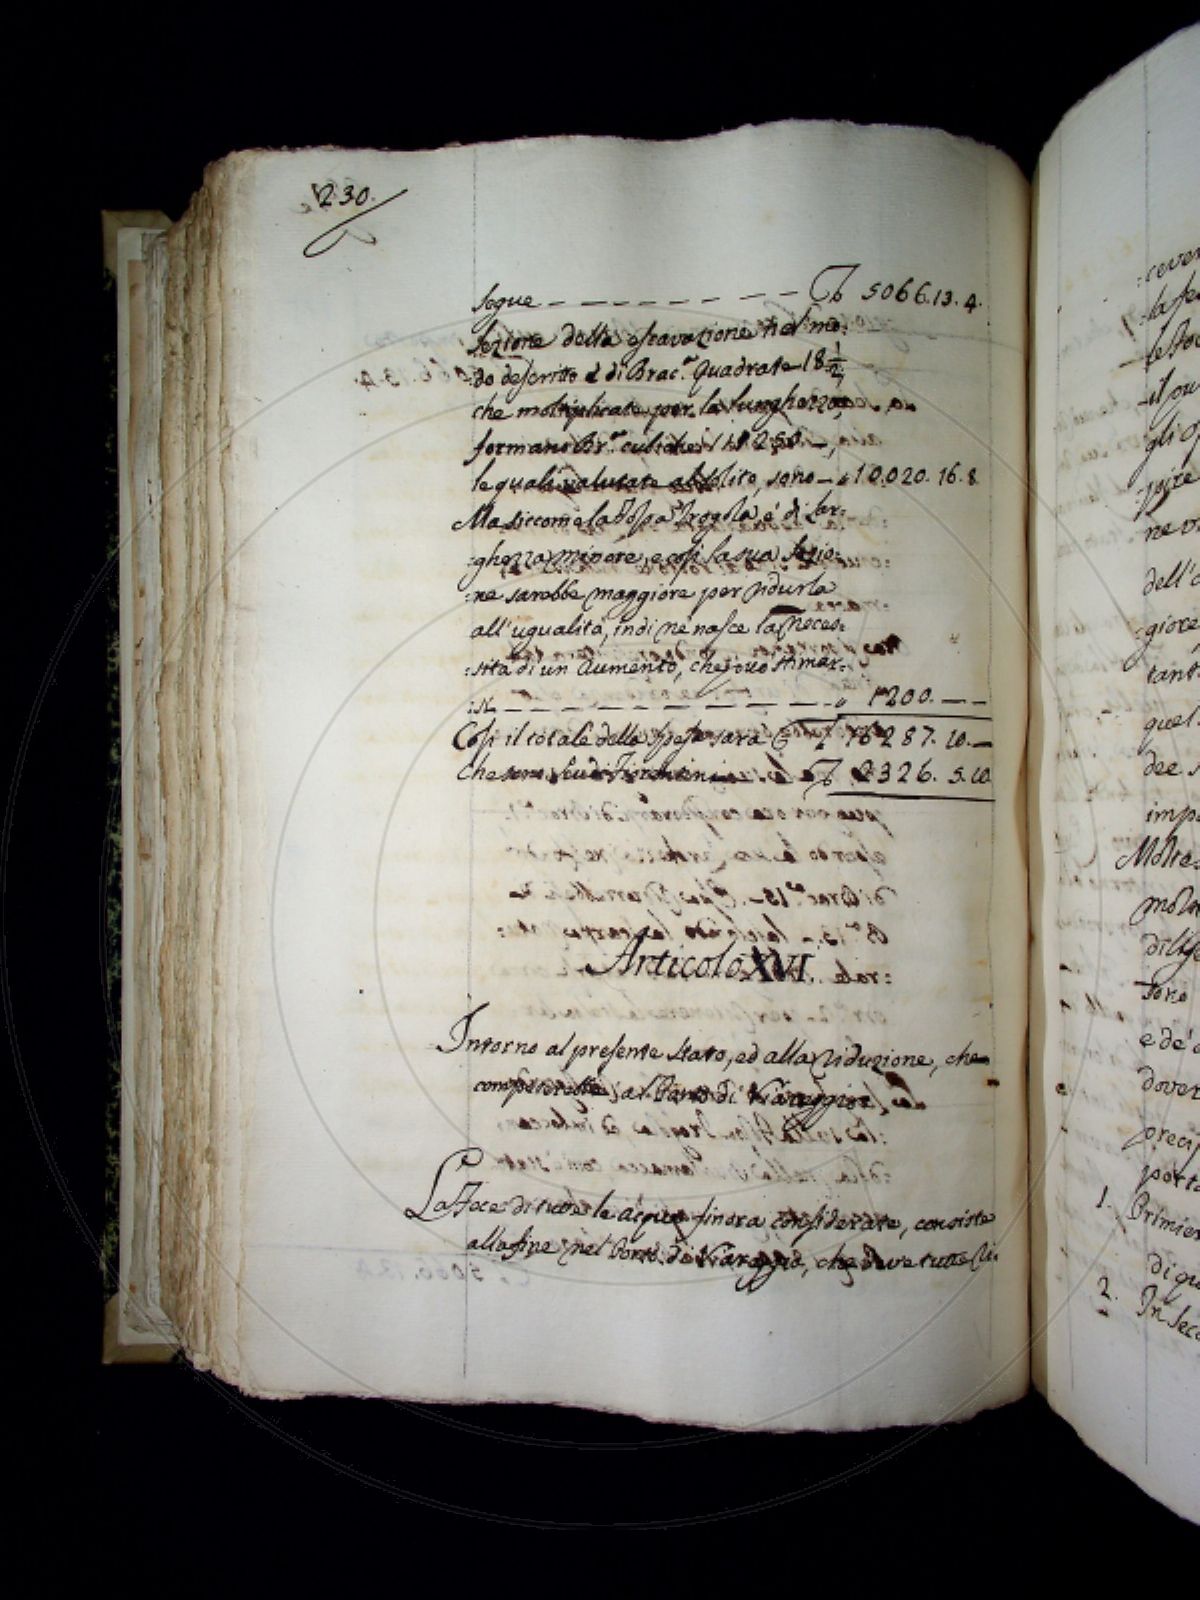 230.
segue - - - - - - - - 5066.13.4.
Sezione della escavazione nel mo:
:do descritto è di Brac.ª Quadrate 18½,
che moltiplicate per la lunghezza,
formano Br.ª cubiche
le quali valutate al solito, sono - „ 10.020.16.8
Ma siccome la Fossa è di lar:
:ghezza minore, e così la sua sezio:
:ne sarebbe maggiore per ridurla
all'ugualità, indi ne nasce la neces:
:sità di un aumento, che può stimar:
:si - - - - - - - - - - „ 1200. — —
Così il totale della spesa sarà 16287.10.—
che sono scudi Fiorentini 2326.5.10
Articolo XVI.
Intorno al presente stato, ed alla riduzione, che
competerebbe al Porto di Viareggio
La Foce di tutte le acque finora considerate, consiste
alla fine nel Porto di Viareggio, che deve tutte
:cever
gli
ne
dell'
:giore
tant
quel
dee
imp
Molte
sono
e de'
dover
preci
porta
1. Primier
di qu
2. In seco